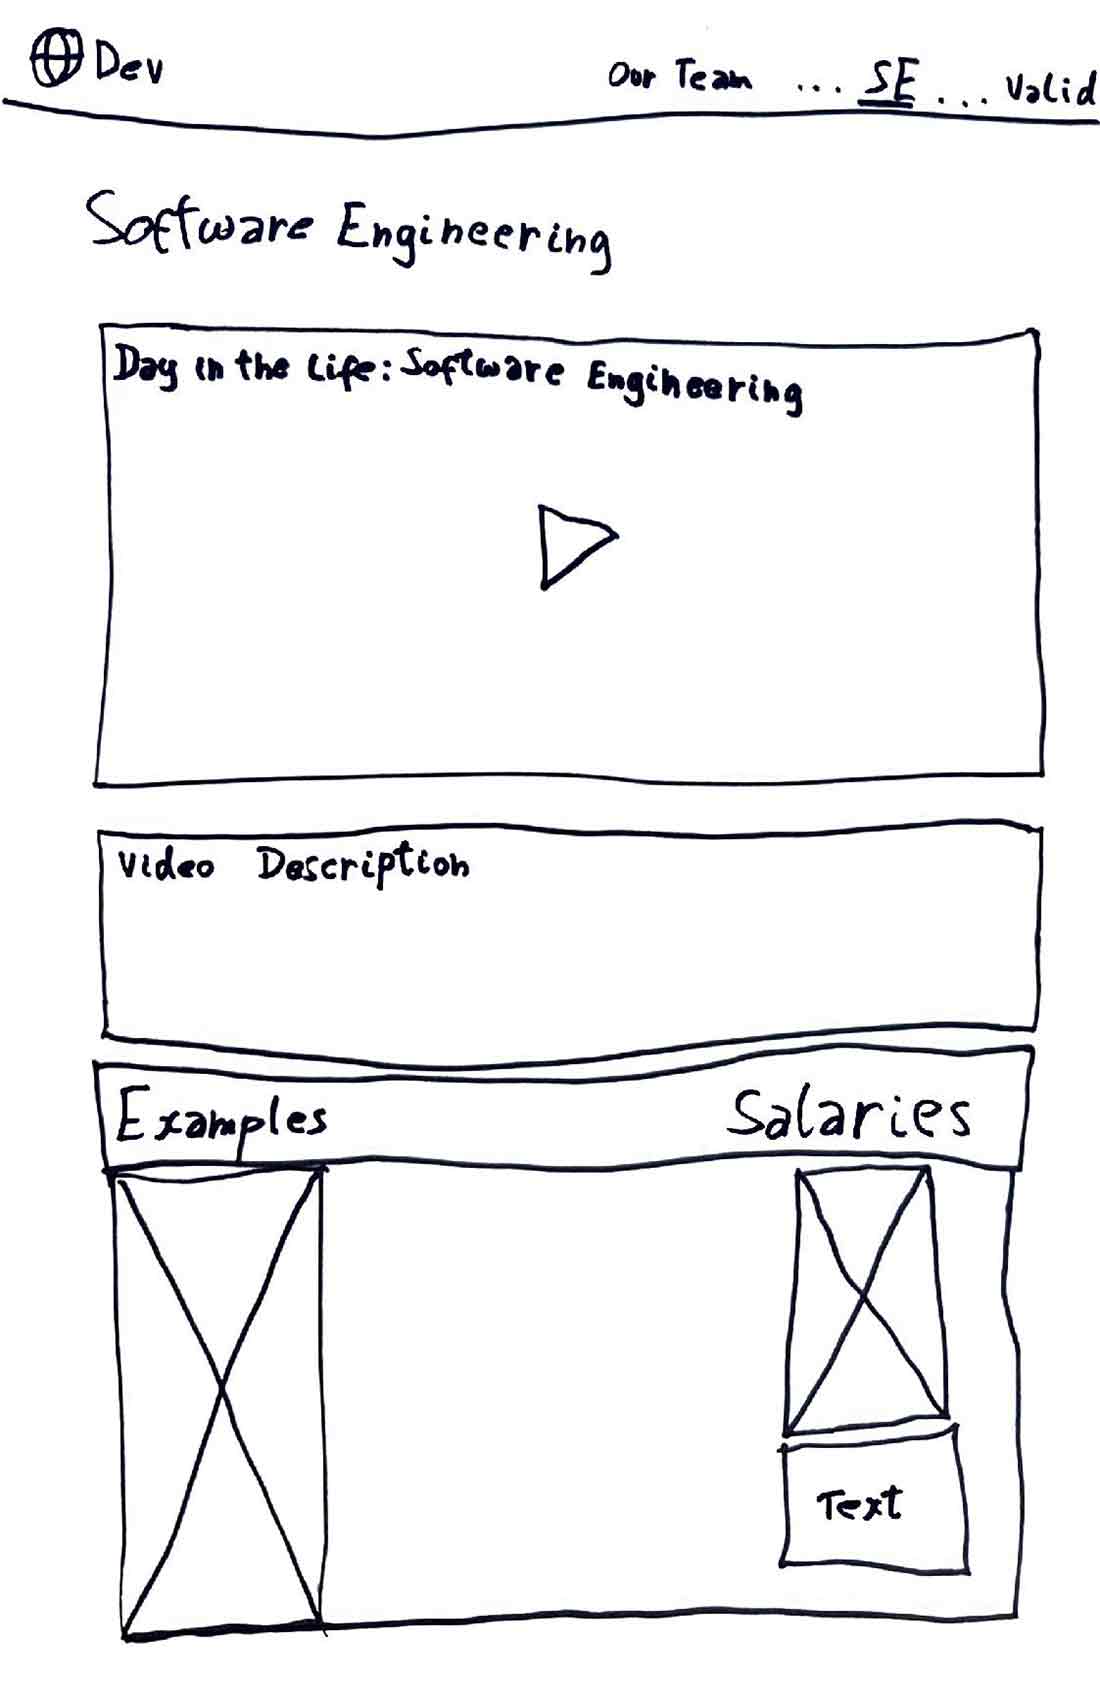 Dev
Our Team ... SE ... Valid
Software Engineering
Day in the Life: Software Engineering
Video Description
Examples
Salaries
Text